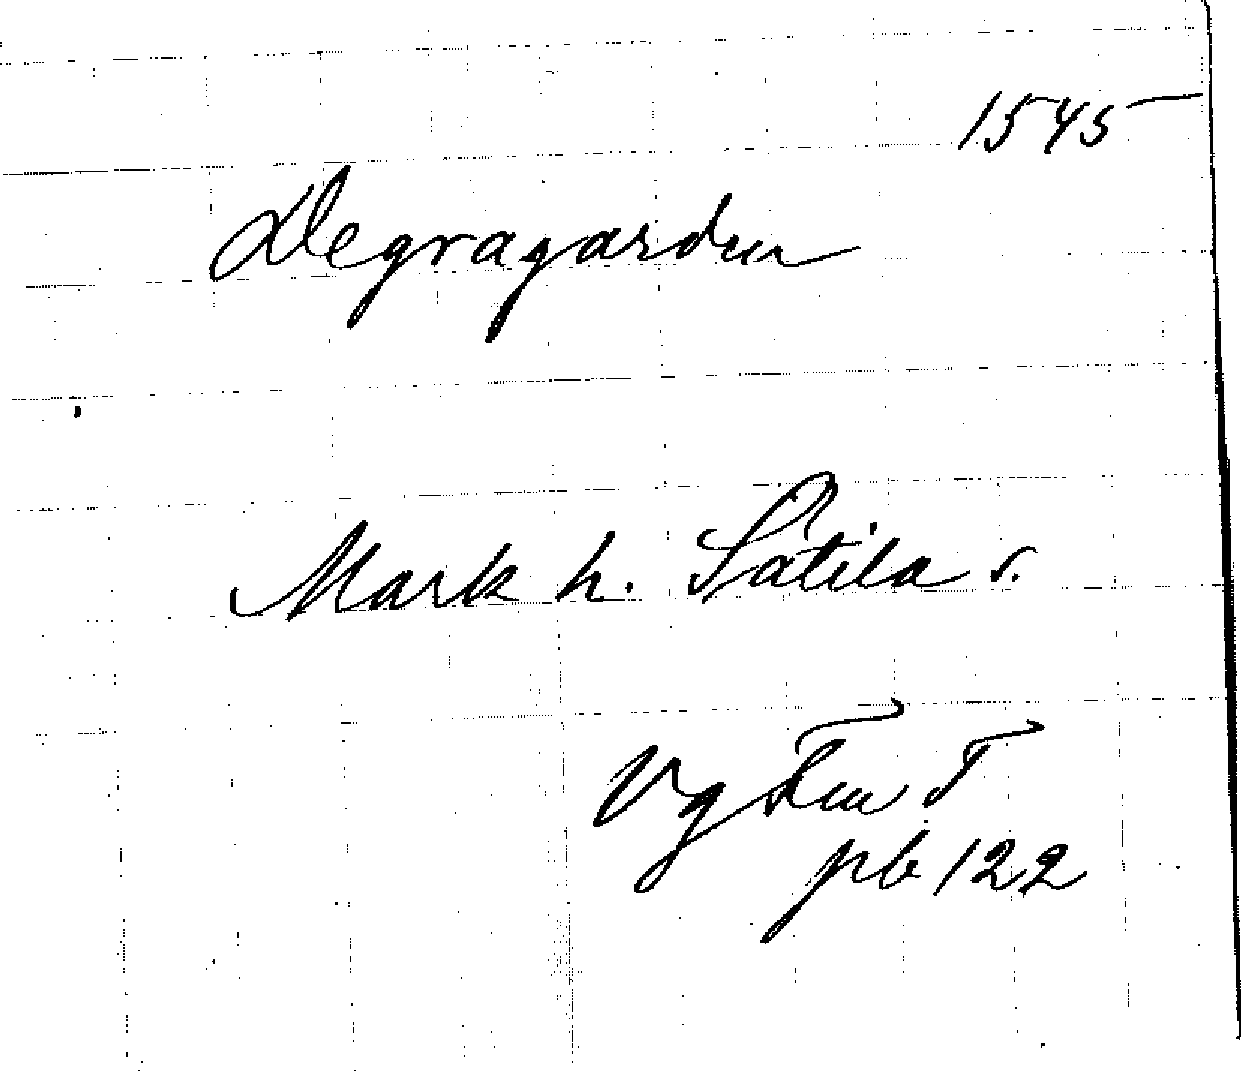 1545
Degragarden
Mark h. Sätila s.
Vg
pb 122